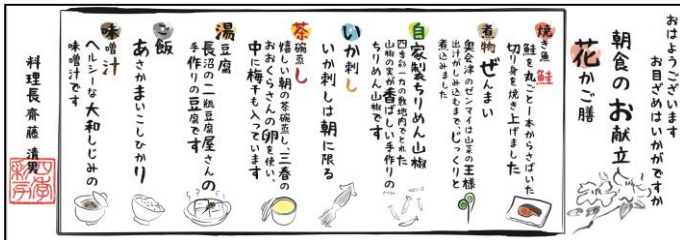 おはようございます
お目ざめはいかがですか
朝食のお献立
花かご膳
焼き魚 鮭
鮭を丸ごと一本からさばいた
切り身を焼き上げました
煮物 ぜんまい
奥会津のゼンマイは山菜の王様
出汁がしみ込むまで、じっくりと
煮込みました
自家製ちりめん山椒
四季彩一力の敷地内でとれた
山椒の実が香ばしい手作りの
ちりめん山椒です
いか刺し
いか刺しは朝に限る
茶碗蒸し
嬉しい朝の茶碗蒸し、三春の
おおくらさんの卵を使い、
中に梅干も入っています
湯豆腐
長沼の二瓶豆腐屋さんの
手作りの豆腐です
ご飯
あさかまいこしひかり
味噌汁
ヘルシーな大和しじみの
味噌汁です
料理長 齋藤 清男